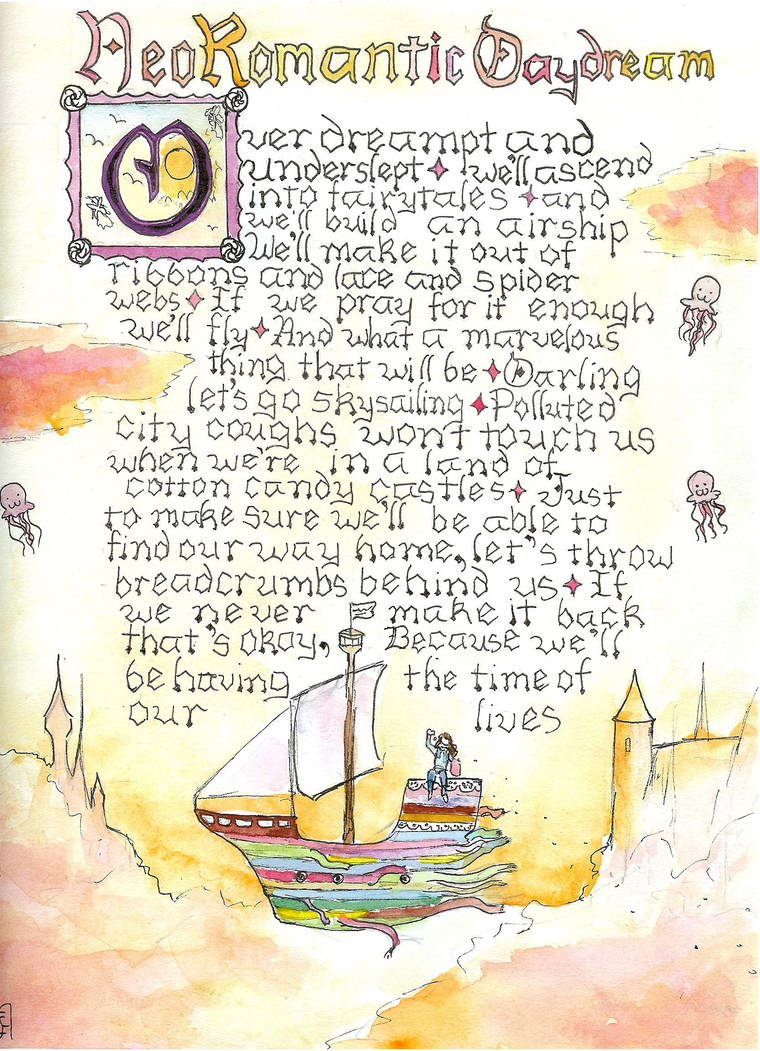 NeoRomantic Daydream
Over dreampt and
underslept ✦ we'll ascend
into fairytales ✦ and
we'll build an airship
We'll make it out of
ribbons and lace and spider
webs ✦ If we pray for it enough
we'll fly ✦ And what a marvelous
thing that will be ✦ Darling
let's go skysailing ✦ Polluted
city coughs won't touch us
when we're in a land of
cotton candy castles ✦ Just
to make sure we'll be able to
find our way home, let's throw
breadcrumbs behind us ✦ If
we never make it back
that's okay, Because we'll
be having the time of
our lives